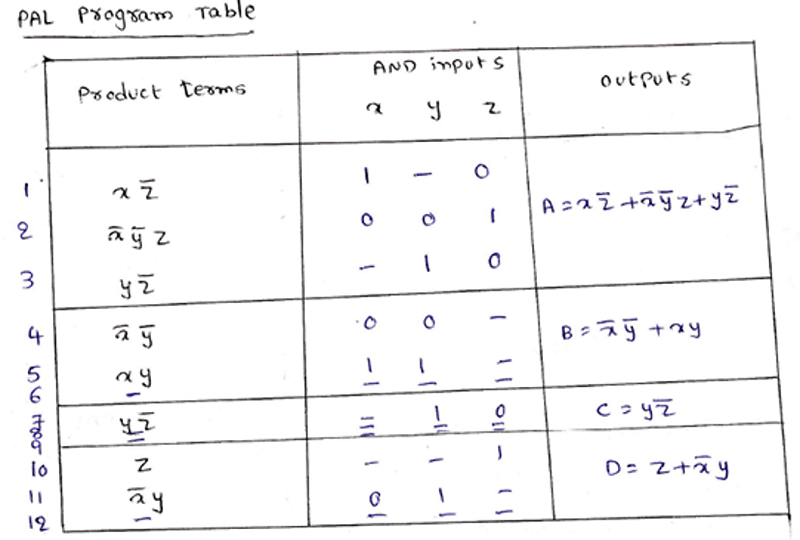 PAL Program Table
Product terms AND inputs outputs
x y z
1 x z̅ 1 – 0
2 x̅ y̅ z 0 0 1 A = x z̅ + x̅ y̅ z + y z̅
3 y z̅ – 1 0
4 x̅ y̅ 0 0 – B = x̅ y̅ + xy
5 xy 1 1 –
6 – – – –
7 y z̅ – 1 0 C = y z̅
8 – – – –
9
10 z – – 1 D = z + x̅ y
11 x̅ y 0 1 –
12 – – – –